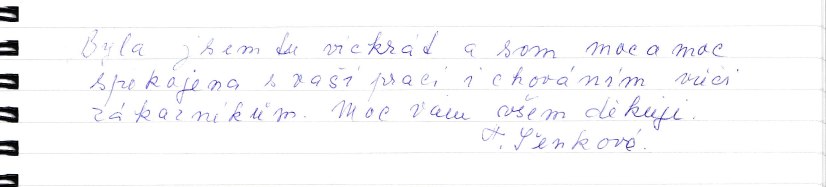 Byla jsem tu víckrát a som moc a moc
spokojena s vaší prací i chováním vůči
zákazníkům. Moc vám všem děkuji.